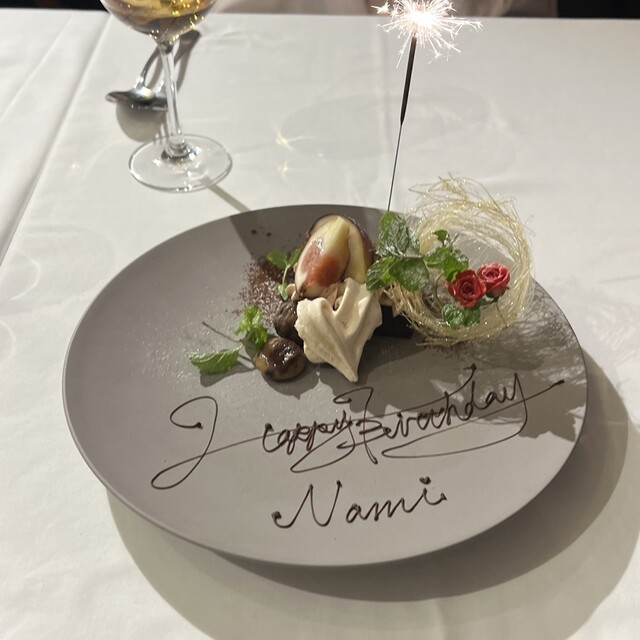 Happy Birthday
Nami